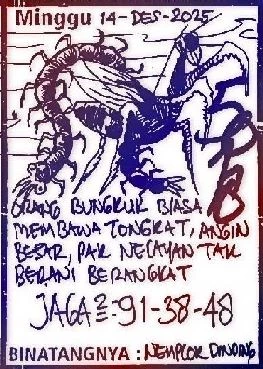 Minggu 14-DES-2025
ORANG BUNGKUK BIASA
MEMBAWA TONGKAT, ANGIN
BESAR, PAK NELAYAN TAK
BERANI BERANGKAT
JAGA 2 = 91-38-48
BINATANGNYA : NEMPLOK DINDING